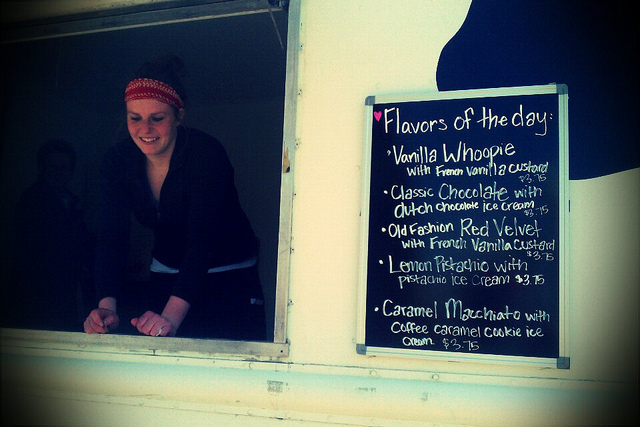 Flavors of the day:
Vanilla Whoopie
with French Vanilla custard
$3.75
Classic Chocolate with
dutch chocolate ice cream
$3.75
Old Fashion Red Velvet
with French Vanilla custard
$3.75
Lemon Pistachio with
pistachio ice cream $3.75
Caramel Macchiato with
Coffee caramel cookie ice
cream $3.75